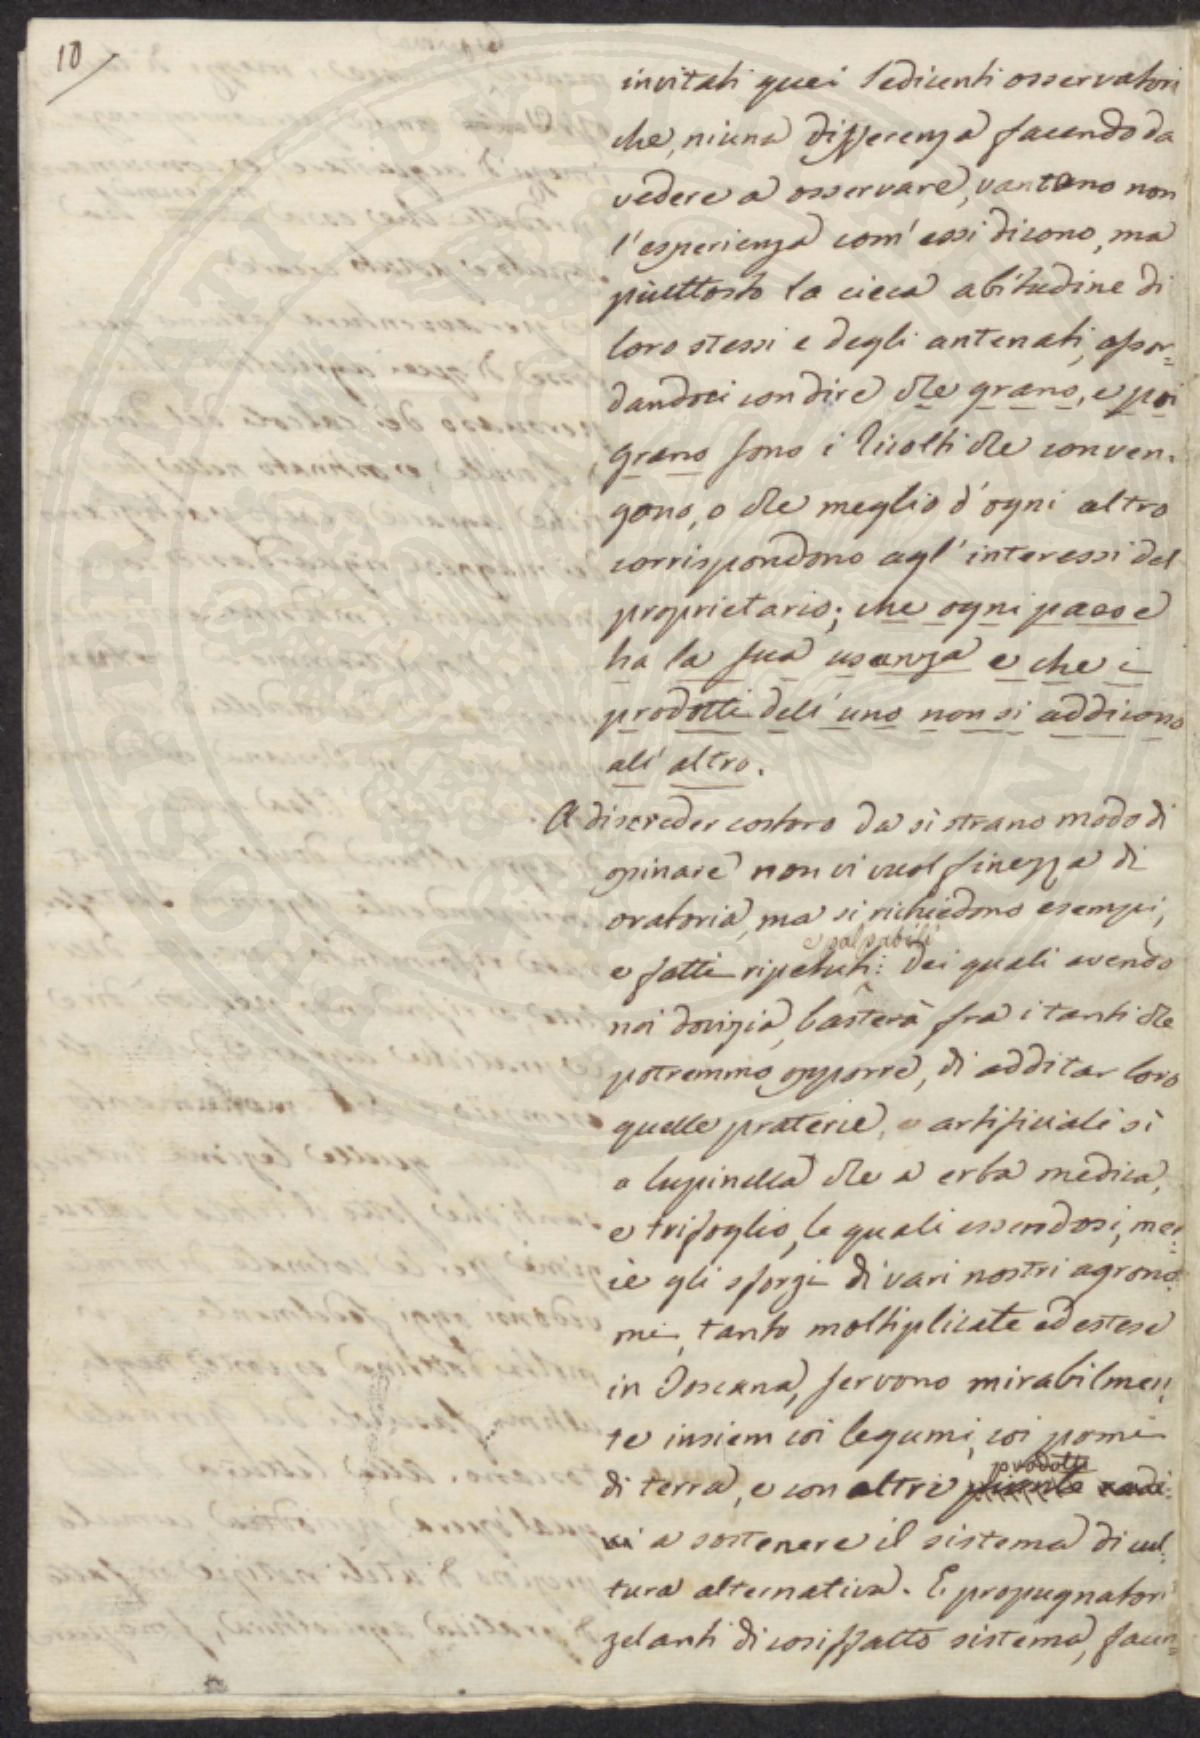 10
invitati quei sedicenti osservatori
che, niuna differenza facendo da
vedere a osservare, vantano non
l'esperienza com'essi dicono, ma
piuttosto la cieca abitudine di
loro stessi e degli antenati, assor=
dandoci con dire che grano, e poi
grano sono i ricolti che conven=
gono, o che meglio d'ogni altro
corrispondono agl'interessi del
proprietario; che ogni paese
ha la sua usanza e che i
prodotti dell'uno non si addicono
all'altro.
A discreder costoro da sì strano modo di
opinare non vi vuol finezza di
oratoria, ma si richiedono esempi,
e palpabili
e fatti ripetuti: dei quali avendo
noi dovizia, basterà fra i tanti che
potremmo opporre, di additar loro
quelle praterie, artificiali sì
a lupinella che a erba medica,
e trifoglio, le quali essendosi, mer=
cè gli sforzi di vari nostri agrono=
mi, tanto moltiplicate ed estese
in Toscana, servono mirabilmen=
te insiem coi legumi, coi pomi
prodotti
di terra, e con altri piante radi=
ci a sostenere il sistema di cul=
tura alternativa. E i propugnatori
zelanti di cosiffatto sistema, facen=